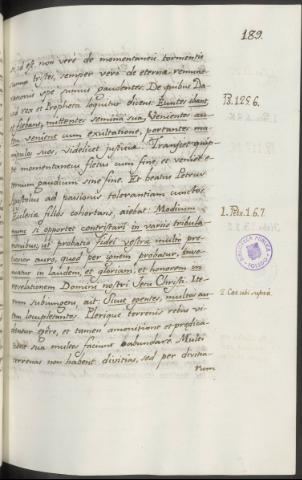 189.
id est non vere de momentaneis tormentis
tristes, semper vero de eterna remune-
ratione spe sumus gaudentes. De quibus Da-
vid rex et Propheta loquitur dicens: Euntes ibant,
et flebant, mittentes semina sua. Venientes au-
tem venient cum exultatione, portantes ma-
nipulos suos, videlicet justitiæ. Transiet quip-
pe momentaneus fletus cum fine, et veniet
gaudium sine fine. Et beatus Petrus
Apostolus ad passionis tolerantiam cunctos
Ecclesiæ filios cohortans, aiebat: Modicum
nunc si oportet contristari in variis tribula-
tionibus, ut probatio fidei vestræ multo pre-
ciosior auro, quod per ignem probatur, inve-
niatur in laudem, et gloriam, et honorem in
revelationem Domini nostri Jesu Christi. Ite-
rum subiungens, ait: Sicut egentes, multos au-
tem locupletantes. Plerique terrenis rebus vi-
dentur egere, et tamen amonitione et prædica-
tione sua multos faciunt abundare. Multi
terrenas non habent divitias, sed per divitia-
rum
Ps. 125.6.
1. Petr. 1.6.7.
2. Cor. ubi supra.
BIBLIOTECA PUBLICA
TOLEDO